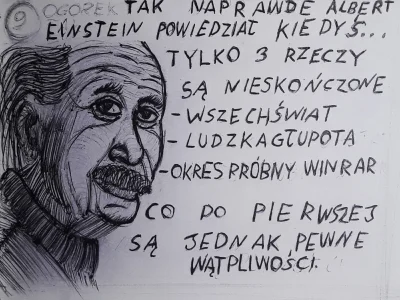 9 OGÓREK TAK NAPRAWDĘ ALBERT
EINSTEIN POWIEDZIAŁ KIEDYŚ...
TYLKO 3 RZECZY
SĄ NIESKOŃCZONE
- WSZECHŚWIAT
- LUDZKA GŁUPOTA
- OKRES PRÓBNY WINRAR
CO DO PIERWSZEJ
SĄ JEDNAK PEWNE
WĄTPLIWOŚCI.